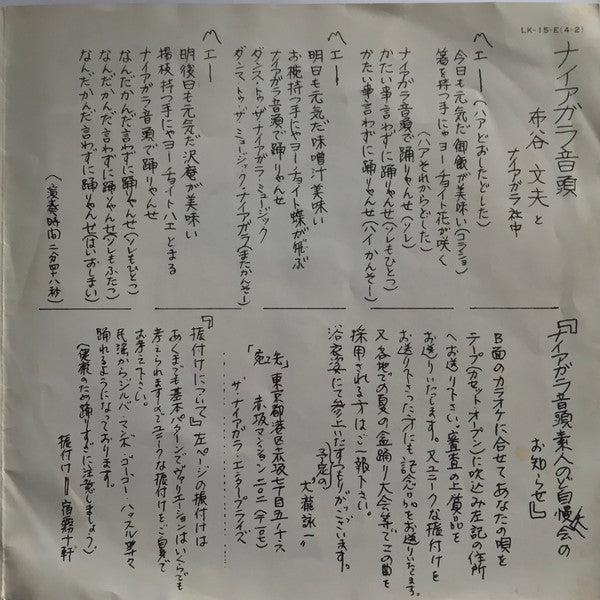 LK-15-E(4-2)
ナイアガラ音頭
布谷 文夫と
ナイアガラ社中
〽エー（ハアどおしたどした）
今日も元気だ御飯が美味い（コラショ）
箸を持つ手にゃヨーチョイト花が咲く
（ハアそれからどした）
ナイアガラ音頭で踊りゃんせ（ソレ）
かたい事言わずに踊りゃんせ（ソレもひとつ）
かたい事言わずに踊りゃんせ（ハイかんそー）
〽エー
明日も元気だ味噌汁美味い
お椀持つ手にゃヨーチョイト蝶が飛ぶ
ナイアガラ音頭で踊りゃんせ
ダンス・トゥ・ザ・ナイアガラ・ミュージック
ダンス・トゥ・ザ・ミュージック・ナイアガラ（またかんそー）
〽エー
明後日も元気だ沢庵が美味い
楊枝持つ手にゃヨーチョイトハエとまる
ナイアガラ音頭で踊りゃんせ
なんだかんだ言わずに踊りゃんせ（ソレもひとつ）
なんだかんだ言わずに踊りゃんせ（ソレもふたつ）
なんだかんだ言わずに踊りゃんせ（はいおしまい）
（演奏時間 二分四十八秒）
『ナイアガラ音頭素人のど自慢大会の
お知らせ』
B面のカラオケに合せてあなたの唄を
テープ（カセットオープン）に吹込み左記の住所
へお送り下さい、審査の上賞品を
お送りいたします。又ユニークな振付けを
お送り下さった方にも記念品をお送りいたします。
又各地での夏の盆踊り大会等でこの曲を
採用される方はご一報下さい。
浴衣姿にて参上いたす予定のつもりがございます。
大瀧詠一
「宛先」東京都港区赤坂七丁目五ノ十六
赤坂マンション二〇二（〒107）
ザ・ナイアガラ・エンタープライズへ
『振付けについて』左ページの振付けは
あくまでも基本パターンでヴァリエーションはいくらでも
考えられますのでユニークな振付けをご自身で
お考え下さい。
民謡からジルバ・マンボ・ゴーゴー・ハッスル等々
踊れるようになっております。
（健康のため踊りすぎに注意しましょう。）
振付け＝宿霧十軒